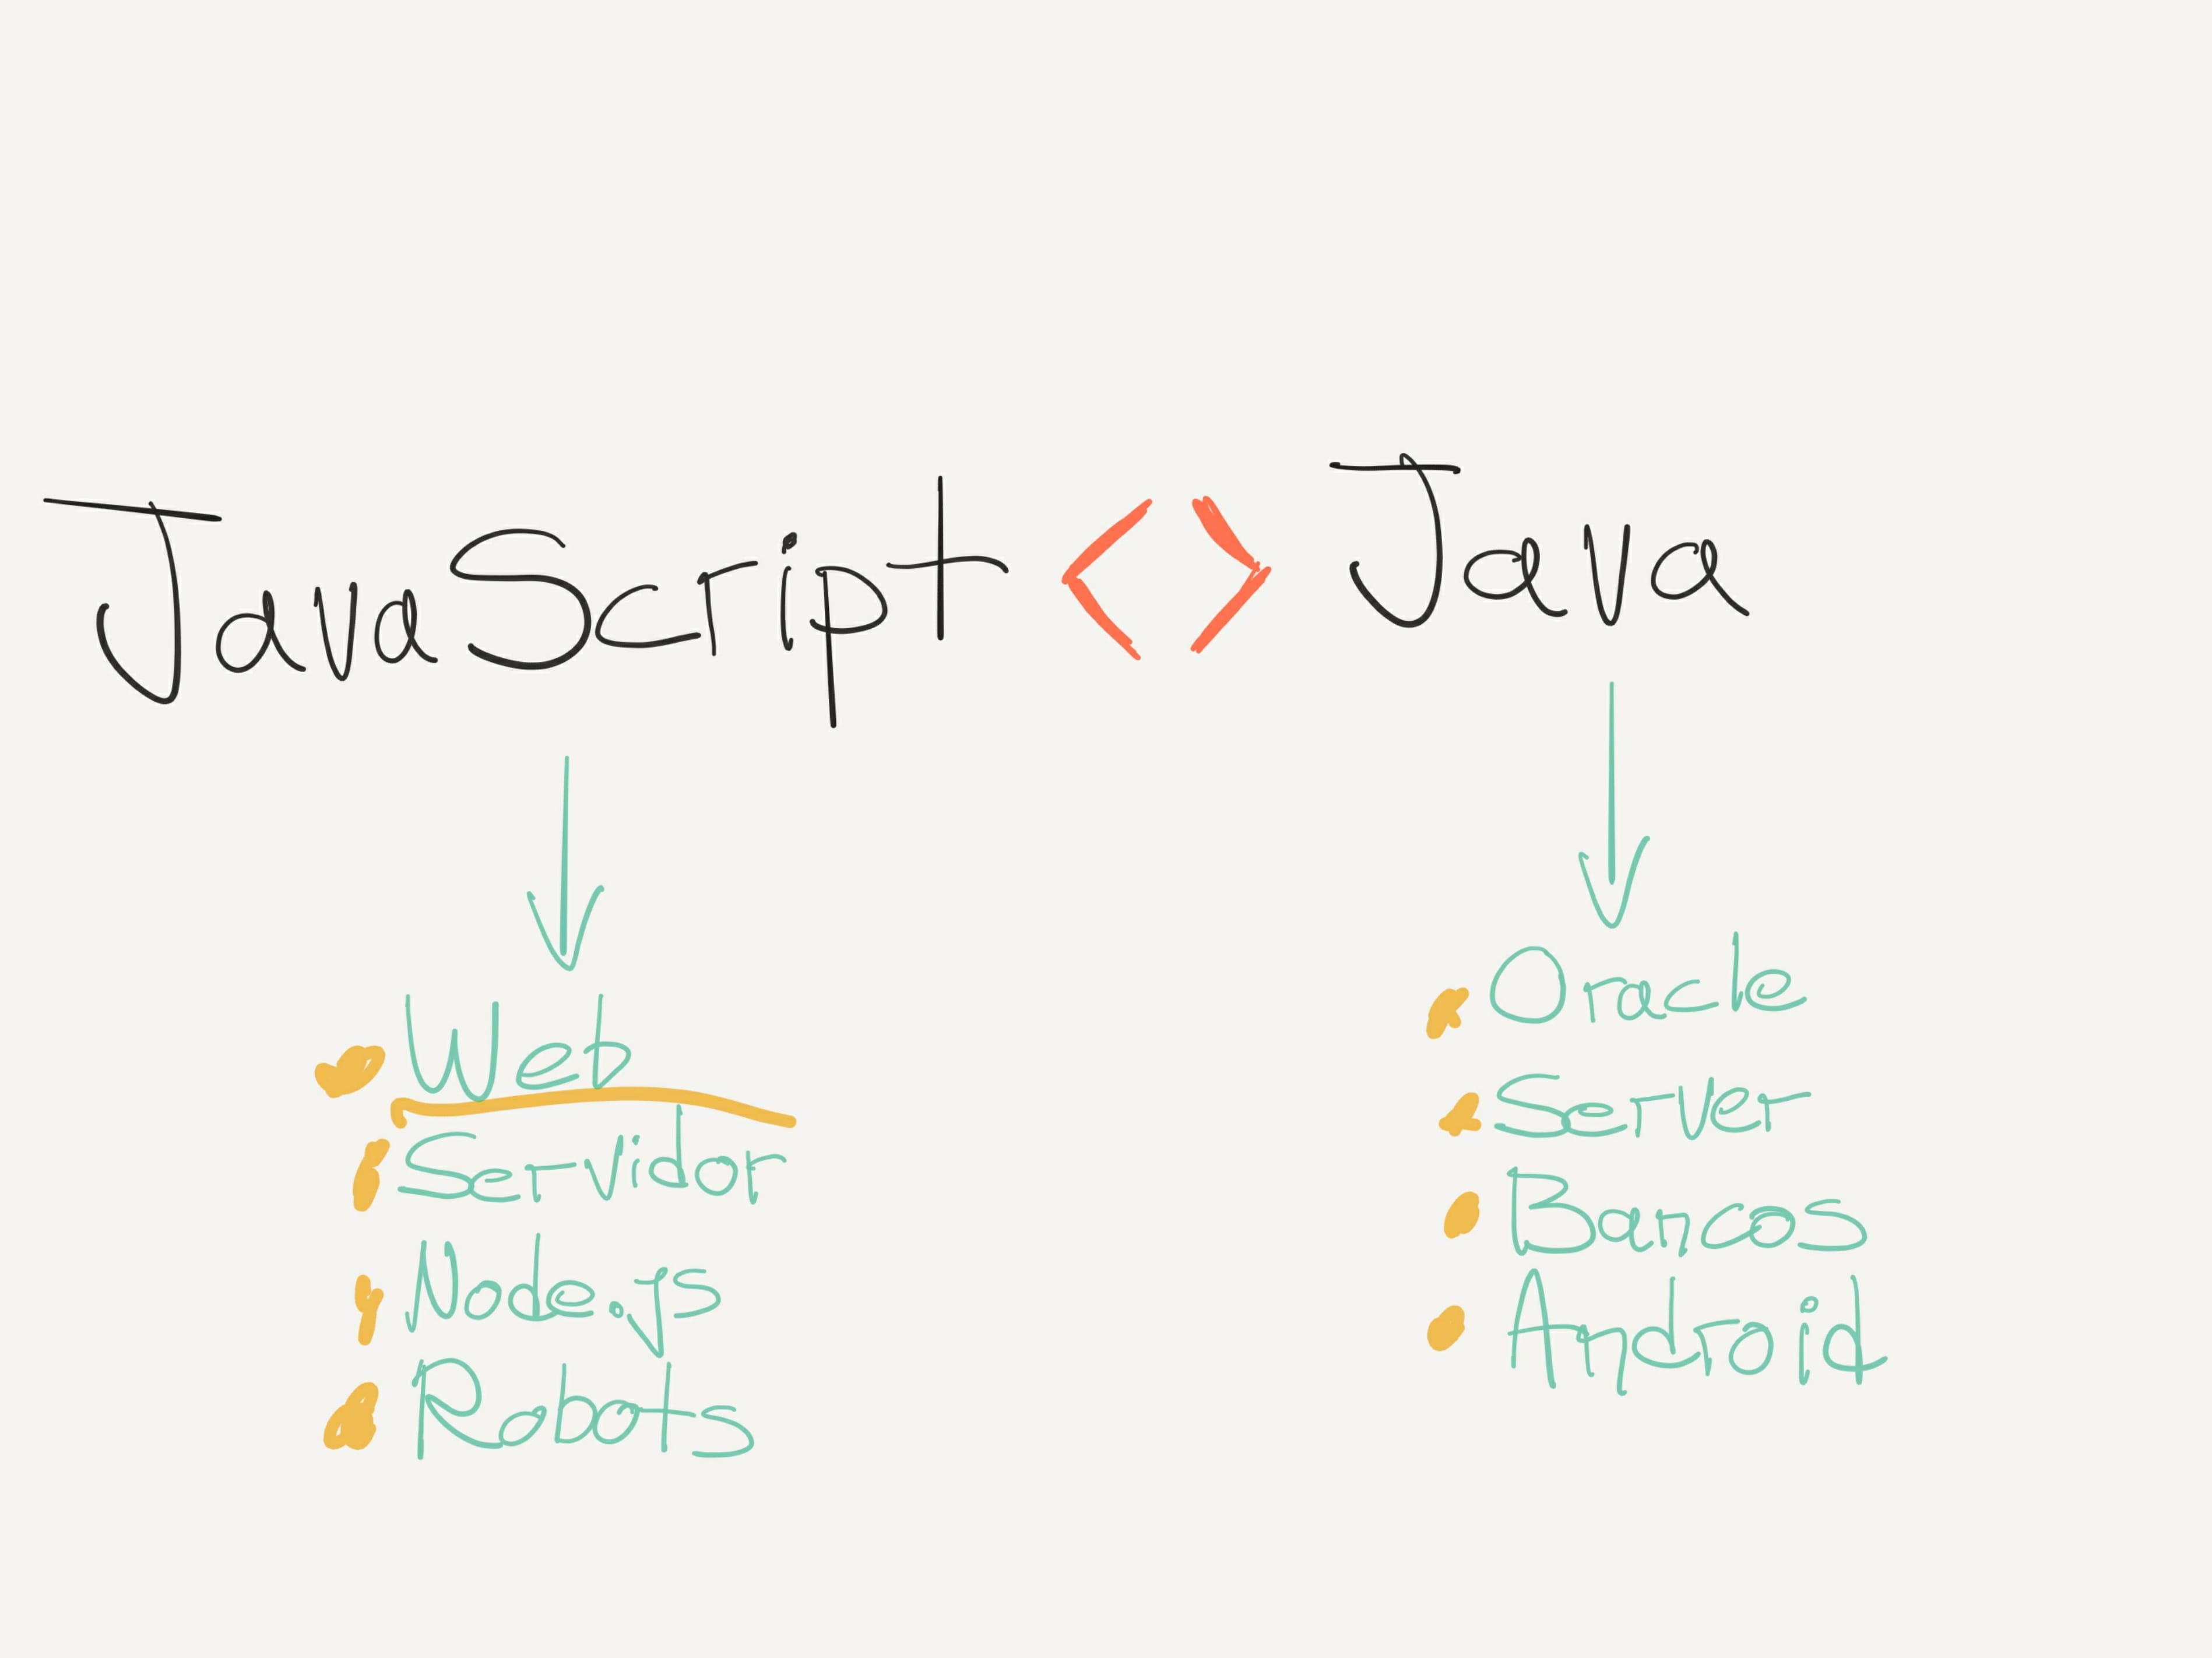 JavaScript <> Java
Web
Servidor
Node.js
Robots
Oracle
Server
Bancos
Android